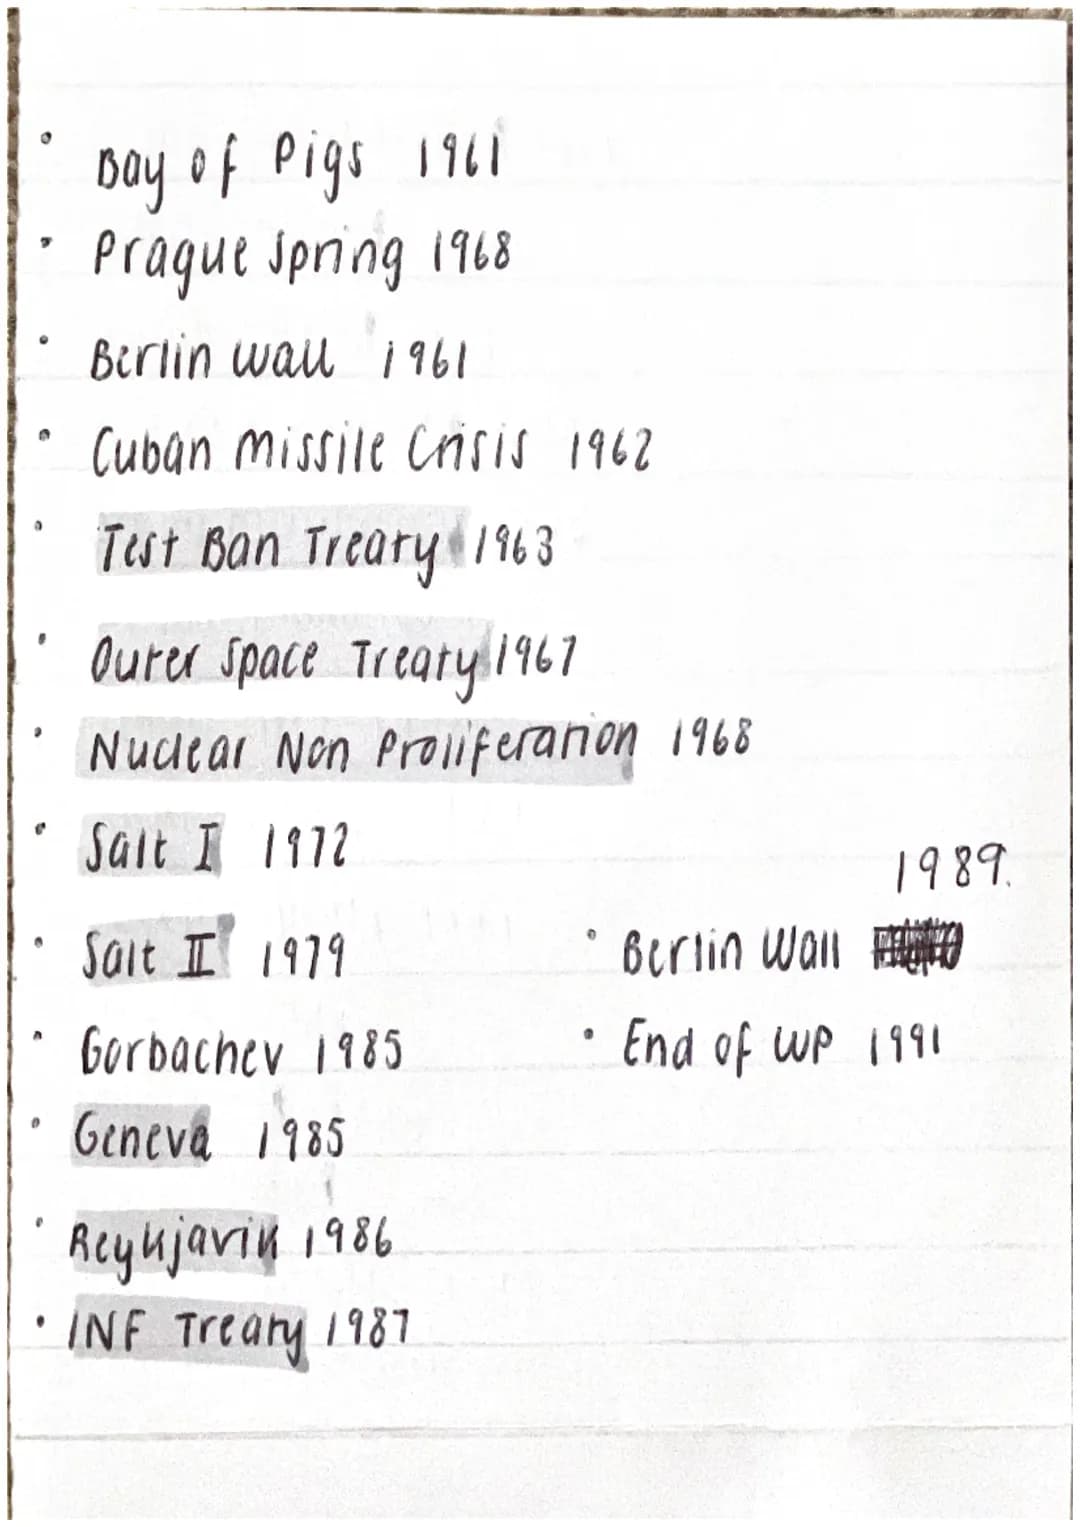 • Bay of Pigs 1961
• Prague Spring 1968
• Berlin Wall 1961
• Cuban Missile Crisis 1962
• Test Ban Treaty 1963
• Outer Space Treaty 1967
• Nuclear Non Proliferation 1968
• Salt I 1972
• Salt II 1979
• Gorbachev 1985
• Geneva 1985
• Reykjavik 1986
• INF Treaty 1987
1989.
• Berlin Wall
• End of WP 1991